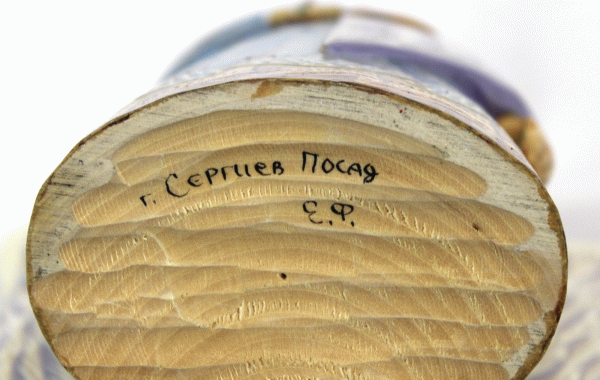 г. Сергиев Посад
Е.Ф.